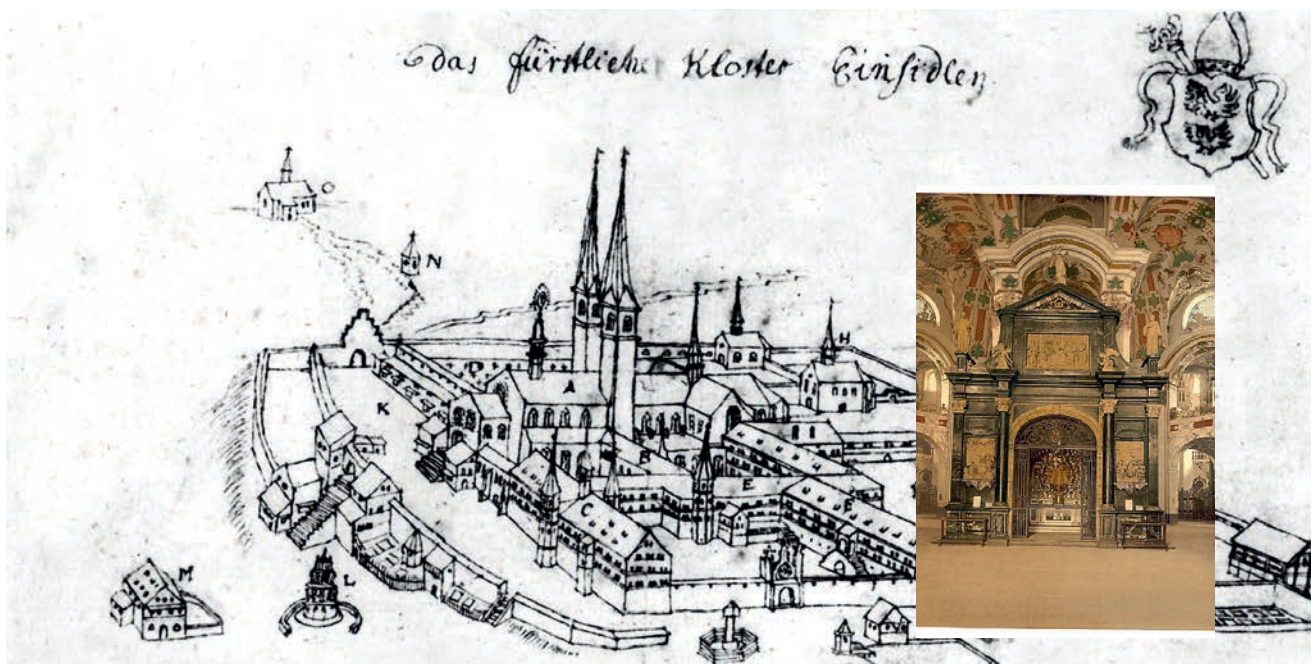 das fürstliche Kloster Einsidlen
O
N
H
A
K
B
E
C
E
M
L